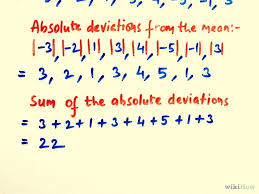 Absolute deviations from the mean:-
|-3|,|-2|,|1|,|3|,|4|,|-5|,|-1|,|3|
= 3, 2, 1, 3, 4, 5, 1, 3
Sum of the absolute deviations
= 3+2+1+3+4+5+1+3
= 22
wikiHow